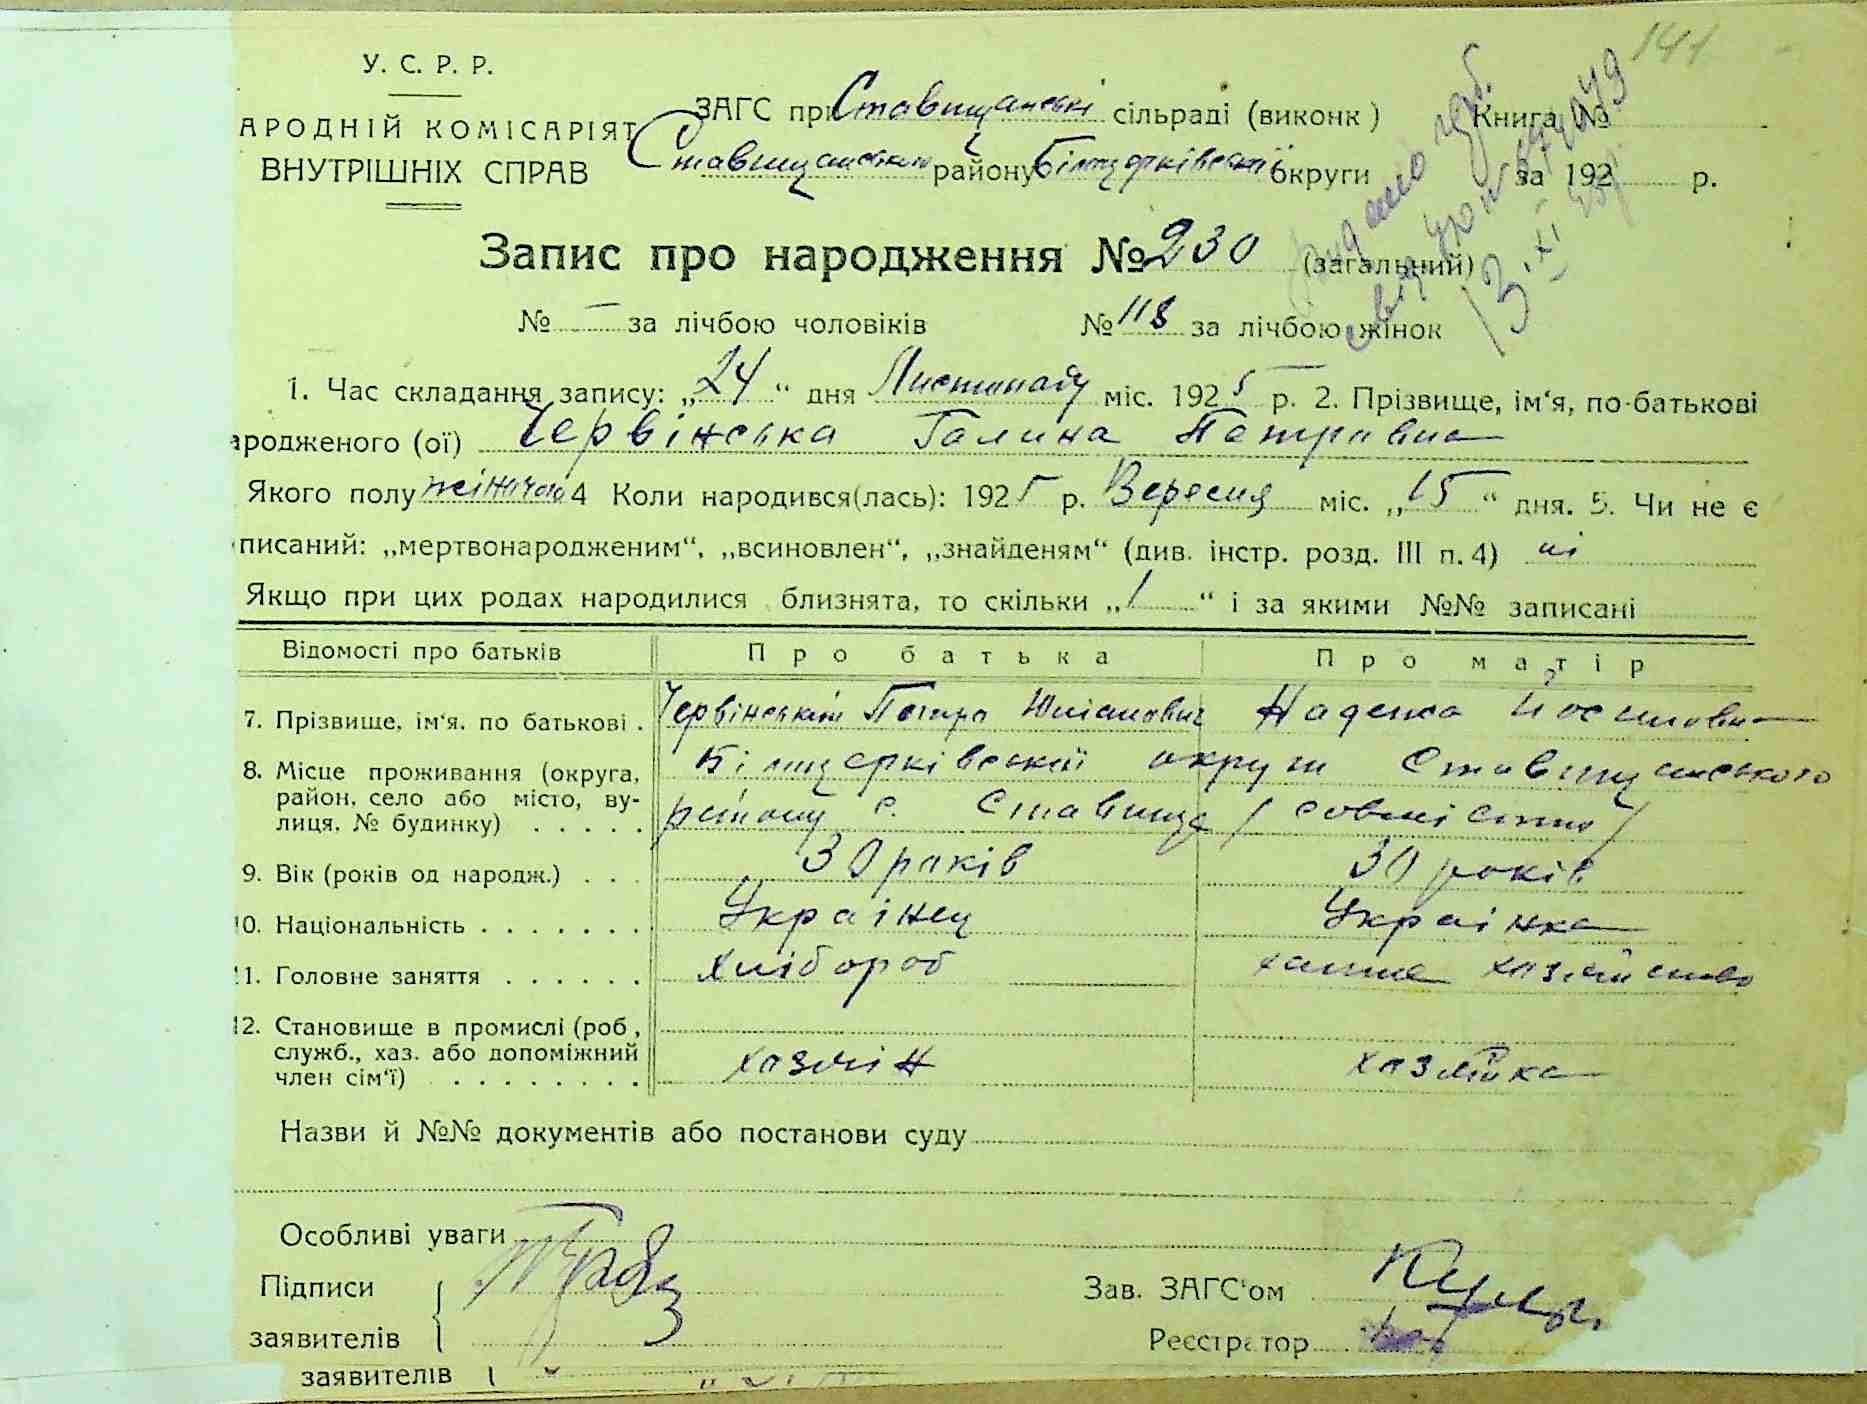 141
У. С. Р. Р.
АРОДНІЙ КОМІСАРІЯТ
ВНУТРІШНІХ СПРАВ
ЗАГС при Ставищанські сільраді (виконк ) Книга №
Ставищанського району Білоцерківської округи за 192 р.
Запис про народження № 230 (загальний)
13 XI
№ — за лічбою чоловіків № 118 за лічбою жінок
1. Час складання запису: „24“ дня Листопаду міс. 1925 р. 2. Прізвище, ім‘я, по-батькові
ародженого (ої) Червінська Галина Петрівна
Якого полу жіночого 4 Коли народився(лась): 1925 р. Вересня міс. „15“ дня. 5. Чи не є
писаний: „мертвонародженим“, „всиновлен“, „знайденям“ (див. інстр. розд. III п. 4) ні
Якщо при цих родах народилися близнята, то скільки „/“ і за якими №№ записані
Відомості про батьків Про батька Про матір
7. Прізвище, ім‘я, по батькові . Червінській Петро Юліанович Надежа Йосиповна
8. Місце проживання (округа, район, село або місто, вулиця, № будинку) . . . . . Білоцерківської округи Ставищанського
району с. Ставище /совмісно/
9. Вік (років од народж.) . . . 30 років 30 років
10. Національність . . . . . . . Українец Українка
11. Головне заняття . . . . . . Хлібороб хатнє хазяйство
12. Становище в промислі (роб, служб., хаз. або допоміжний член сім‘ї) . . . . . . . . хазяін хазяйка
Назви й №№ документів або постанови суду
Особливі уваги
Підписи
заявителів
Зав. ЗАГС‘ом
Реєстратор
заявителів